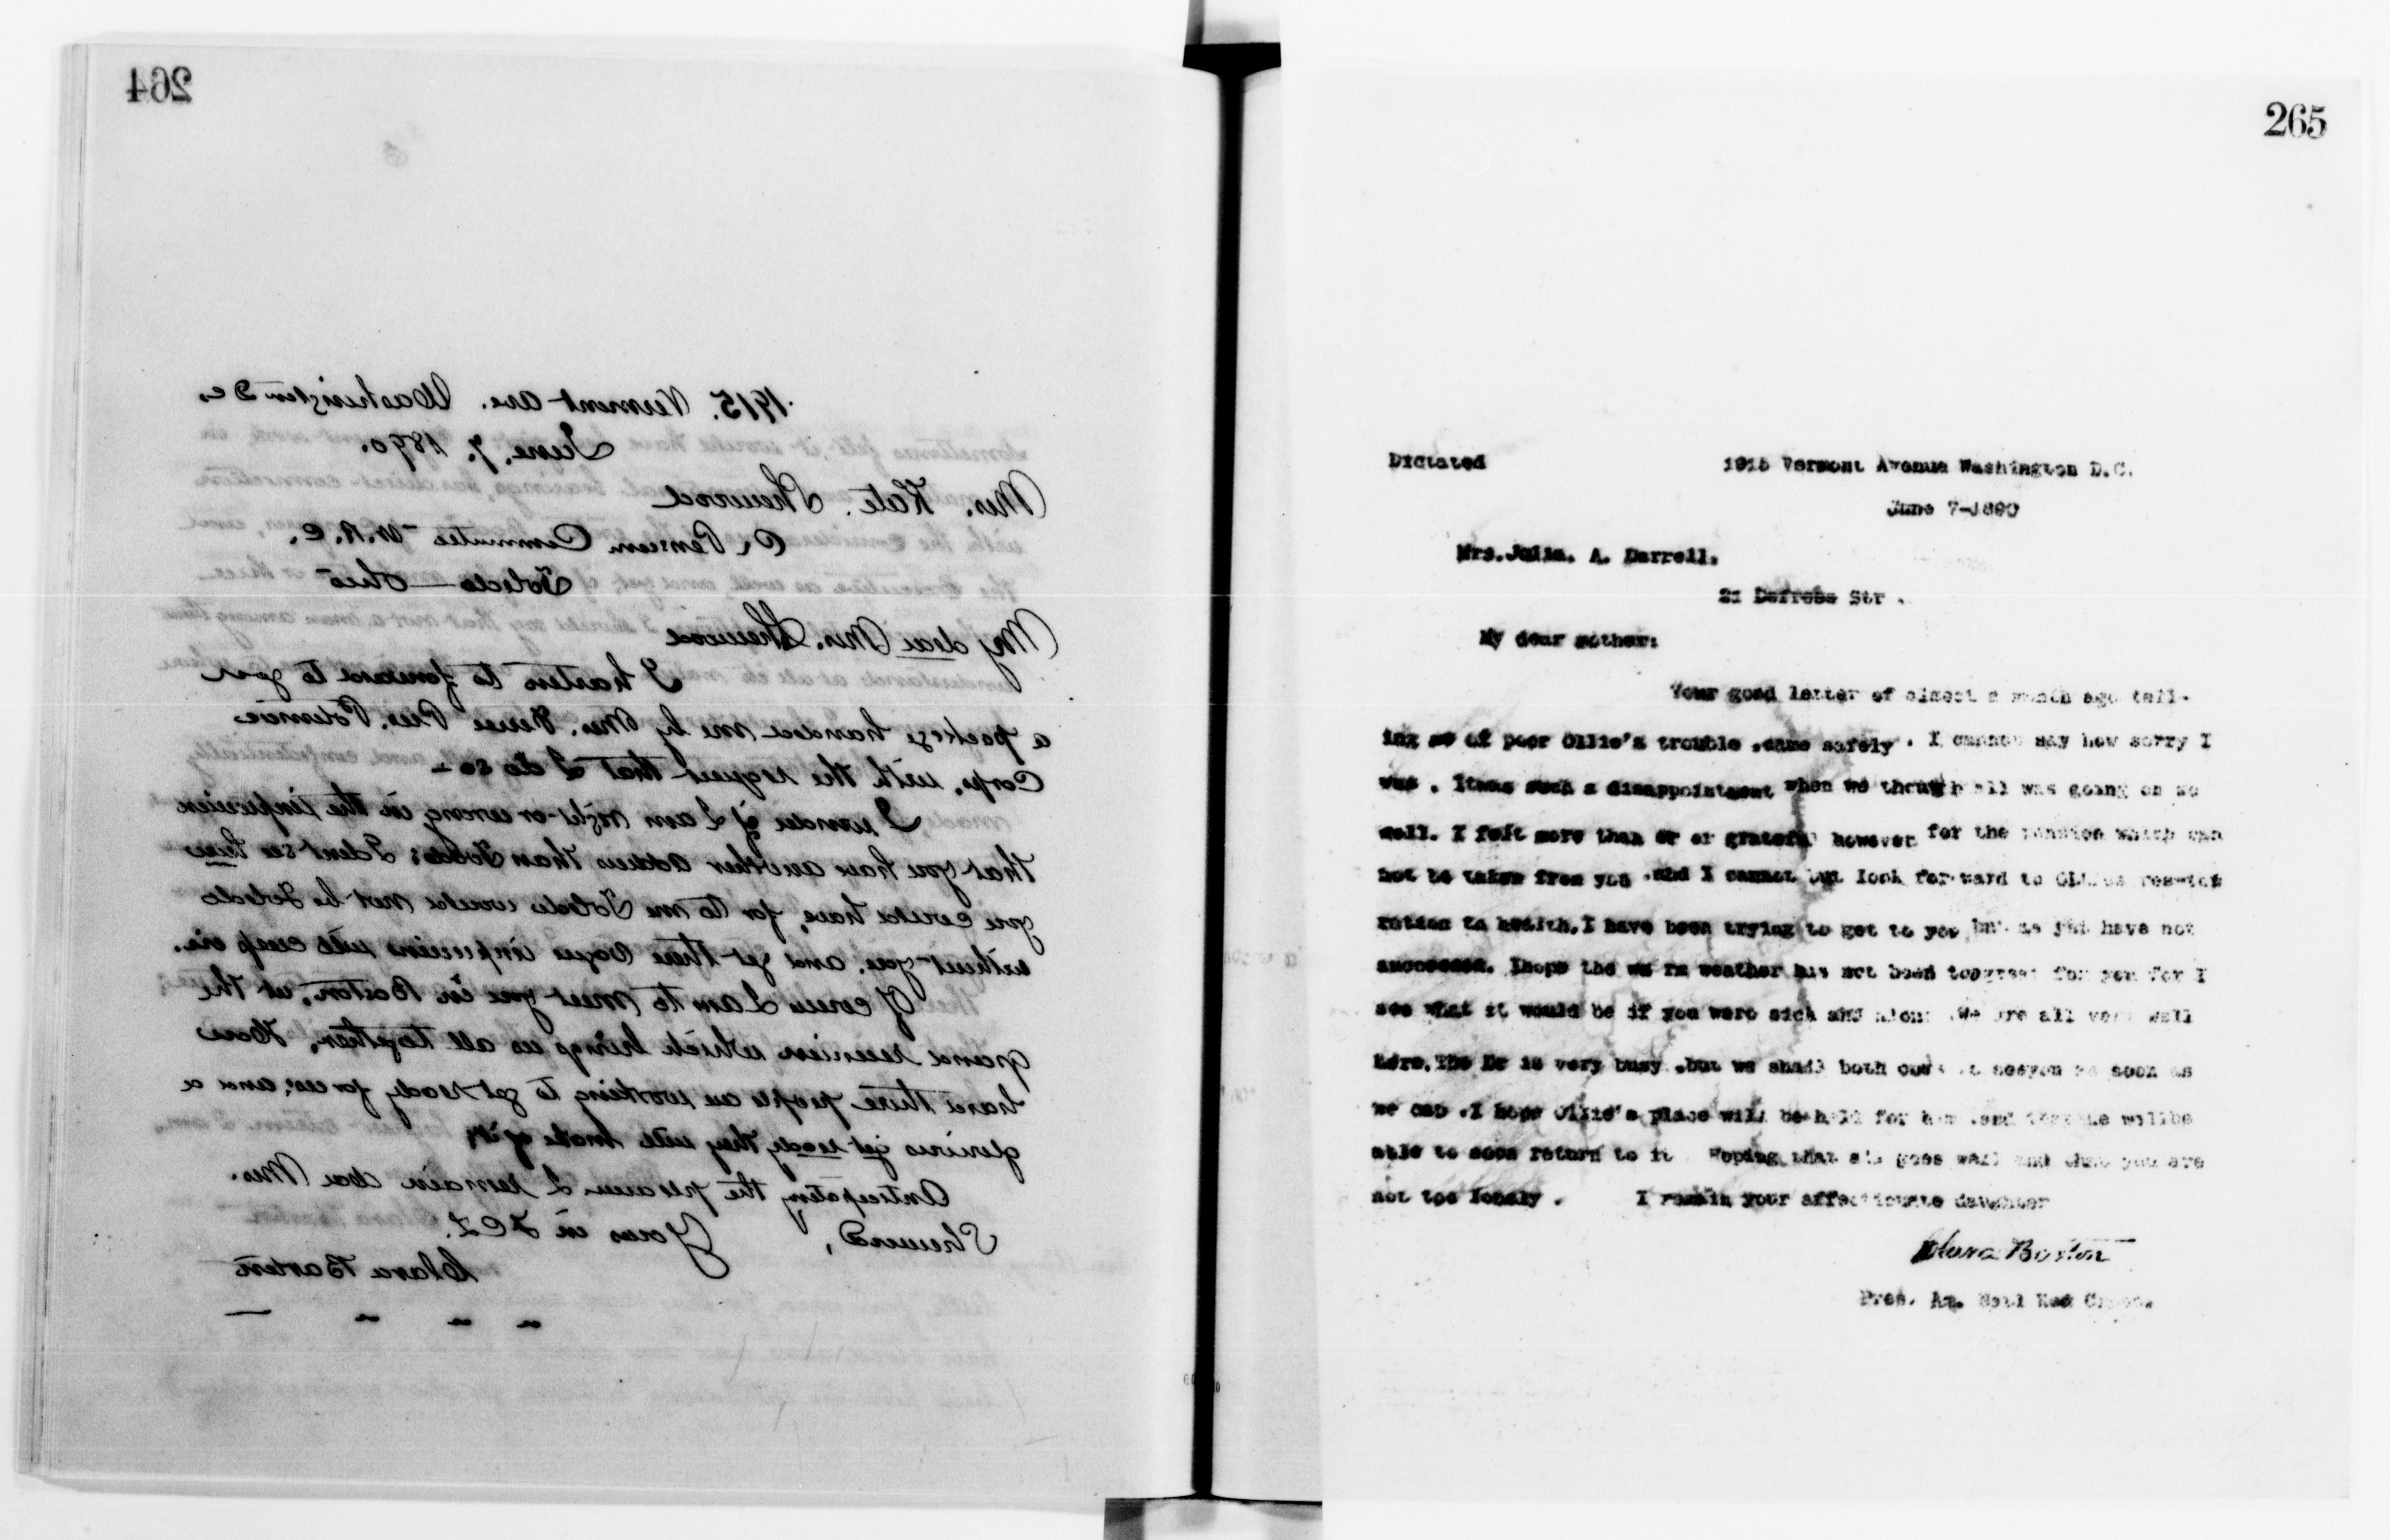 264
1915. Vermont Ave. Washington D C.
June. 7. 1890.
Mrs. Kate. Sherwood
Pension Committee W.R.C.
Toledo — Ohio
My dear Mrs. Sherwood
I hasten to forward to you
a package handed me by Mrs. Pres. Potomac
Corps, with the request that I do so —
I wonder if I am right or wrong in the impression
that you have another address than Toledo; I dont see how
you could have, for to me Toledo would not be Toledo
without you, and yet these vague impressions will creep in.
Of course I am to meet you in Boston, at the
grand reunion which brings us all together, How
hard those people are working to get ready for us, and a
glorious get ready they will make of it,
Anticipating the pleasure I remain dear Mrs.
Sherwood, Yours in F C L.
Clara Barton
265
Dictated 1915 Vermont Avenue Washington D.C.
June 7-1890
Mrs. Julia. A. Darrell.
21 Defrees Str .
My dear mother:
Your good letter of almost a month ago tell-
ing me of poor Ollie's trouble .came safely . I cannot say how sorry I
was . Itwas such a disappointment when we though all was going on so
well. I felt more than er er grateful however for the pension which can
not be taken from you .and I cannot but look forward to Ollies
ration to health. I have been trying to get to you but as yet have not
succeeded. Ihope the wa rm weather has not been toogreat for you for I
see what it would be if you were sick and alone .We are all very well
here. The Dr is very busy .but we shall both come to seeyou as soon as
we can .I hope Ollie's place will be held for him .and that he willbe
able to soon return to it Hoping that all goes well and that you are
not too lonely . I remain your affectionate daughter
Clara Barton
Pres. Am. Natl Red Cross.